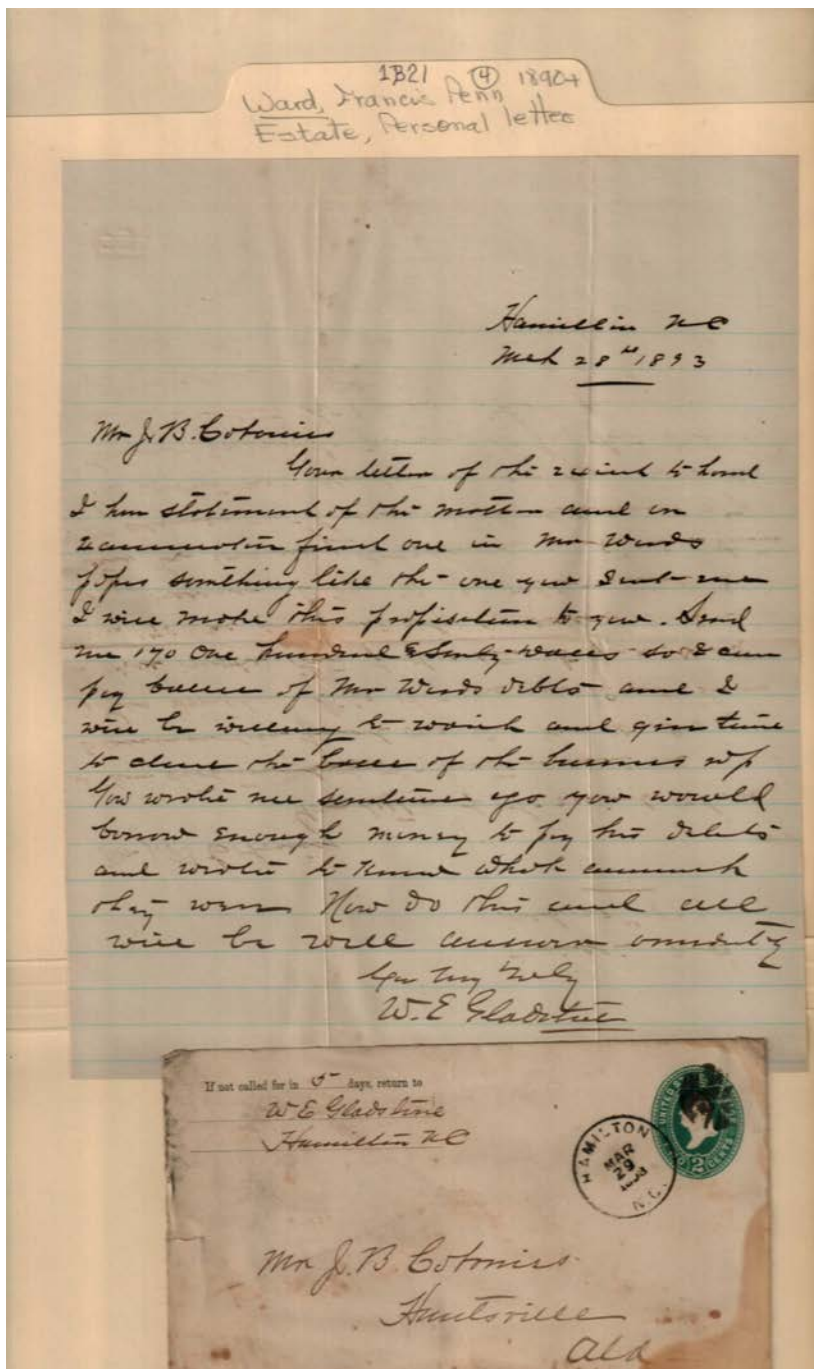 1B21 ④ 1890+
Ward, Francis Penn
Estate, Personal letter
Hamilton NC
Mch 28th 1893
Mr J. B. Cotonies
Your letter of the inst to hand
I have statement of the matter and on
examination find one in Mr Wards
papers something like the one you sent me
I will make this proposition to you. Send
me 170 One hundred & Seventy so I can
pay balance of Mr Wards debts and I
will be willing to wait and give time
to close the balance of the business up
You wrote me sometime ago you would
borrow enough money to pay his debts
and wrote to know what amount
they were Now do this and all
will be well answer
Yours Truly
W. E Gladstine
If not called for in 5 days, return to
W E Gladstine
Hamilton NC
HAMILTON
MAR
29
1893
N.C.
UNITED STATES
2 CENTS
Mr J. B. Cotonies
Huntsville
Ala